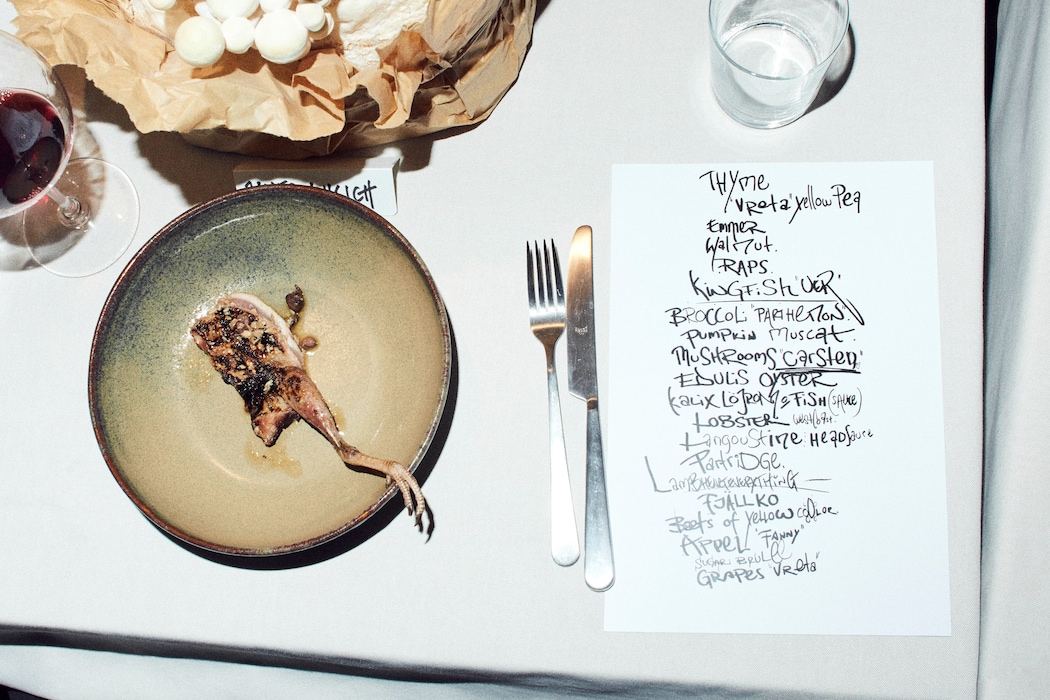 THYME
"VReta" Yellow Pea
EMMER
WalNut.
RAPS.
KiNGFiSH "UER"
BROCCOLI "PARTHENON"
PUMPKIN MUSCAT.
MUSHROOMS "Carsten"
EDULIS OYSTER
KALIX LÖJROM FISH (SAUCE)
LOBSTER
Langoustine HEADSauce
PartriDGe.
FJÄLLKO
Beets of Yellow COLOR
APPEL "FANNY"
SUGAR BRULEE
GRAPES "VReta"